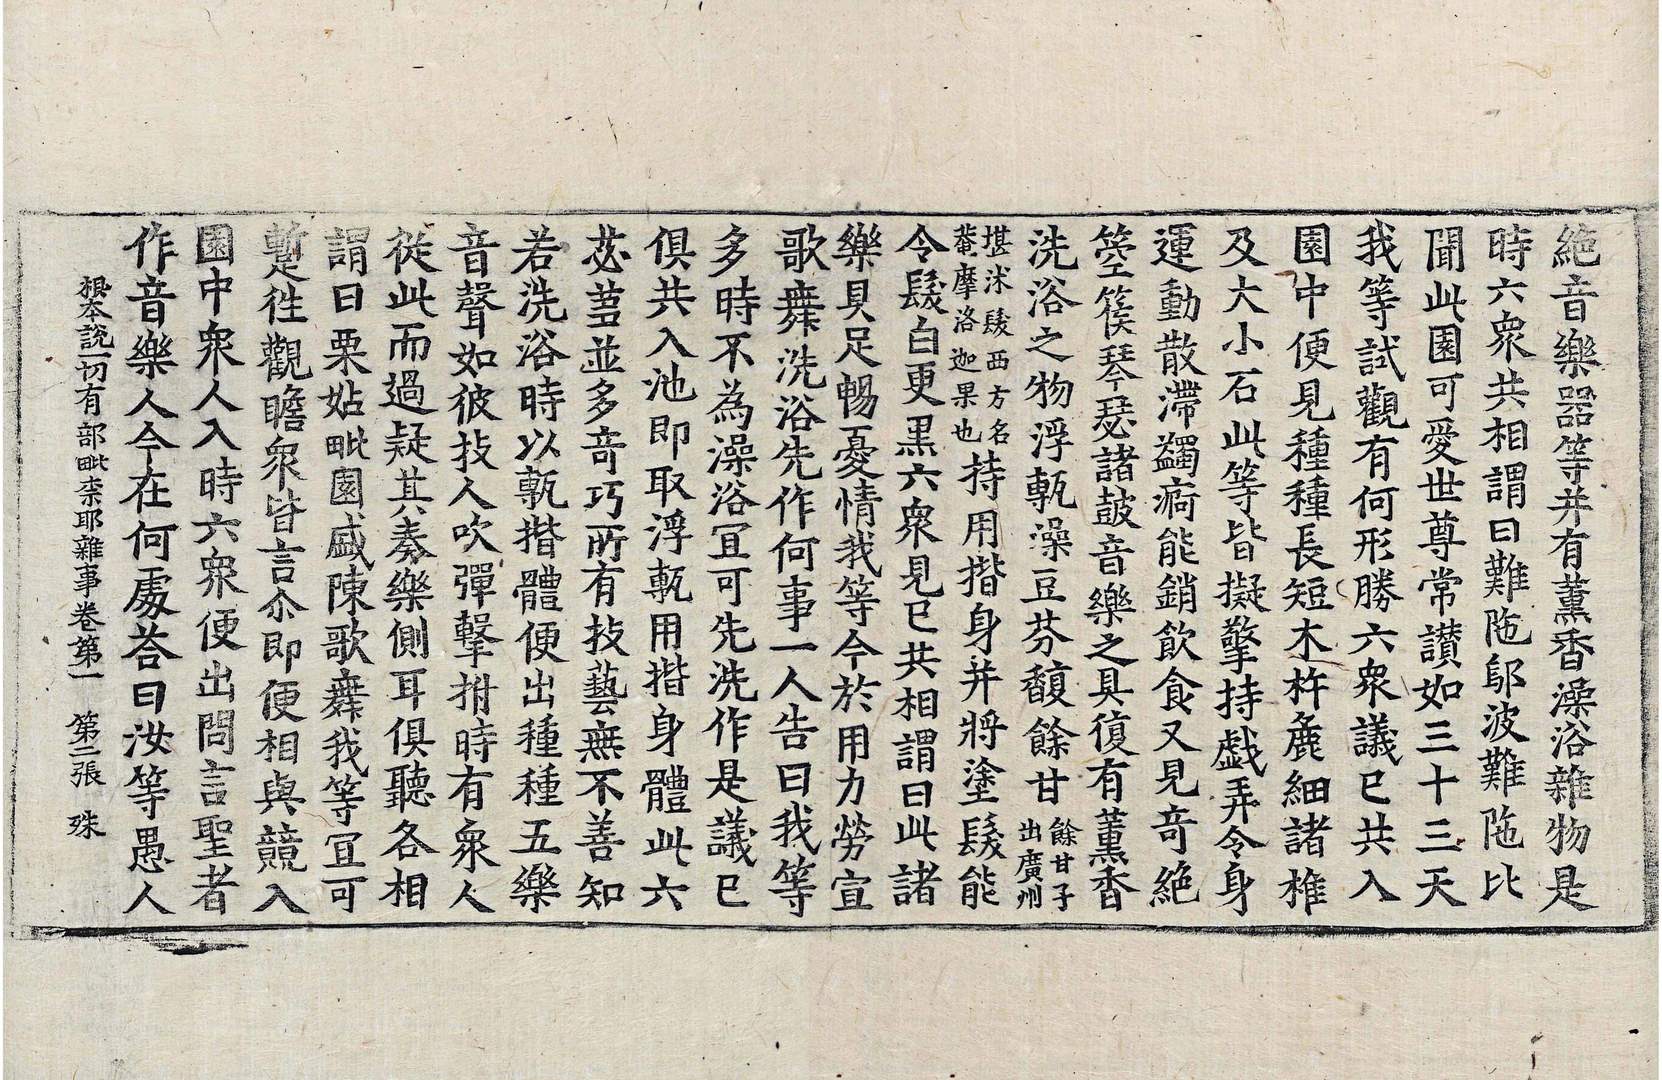 絶音樂器等并有薫香澡浴雜物是
時六衆共相謂曰難陁鄔波難陁比
聞此園可愛世尊常讃如三十三天
我等試觀有何形勝六衆議已共入
園中便見種種長短木杵麁細諸椎
及大小石此等皆擬擎持戱弄令身
運動散滯蠲痾能銷飮食又見竒絶
箜篌琴瑟諸鼓音樂之具復有薫香
洗浴之物浮甎澡豆芬馥餘甘餘甘子出廣州
堪洣髮西方名菴摩洛迦果也持用揩身并將塗髮能
令髮白更黒六衆見已共相謂曰此諸
樂具足暢憂情我等今於用力勞宣
歌舞洗浴先作何事一人告曰我等
多時不為澡浴冝可先洗作是議已
俱共入池即取浮甎用揩身體此六
苾芻並多竒巧所有技藝無不善知
若洗浴時以甎揩體便出種種五樂
音聲如彼技人吹彈擊拊時有衆人
從此而過疑其奏樂側耳俱聽各相
謂曰栗姑毗園盛陳歌舞我等冝可
暫徃觀瞻衆皆言尒即便相與競入
園中衆人入時六衆便出問言聖者
作音樂人今在何處荅曰汝等愚人
根本說一切有部毗奈耶雜事卷第一　第二張　殊